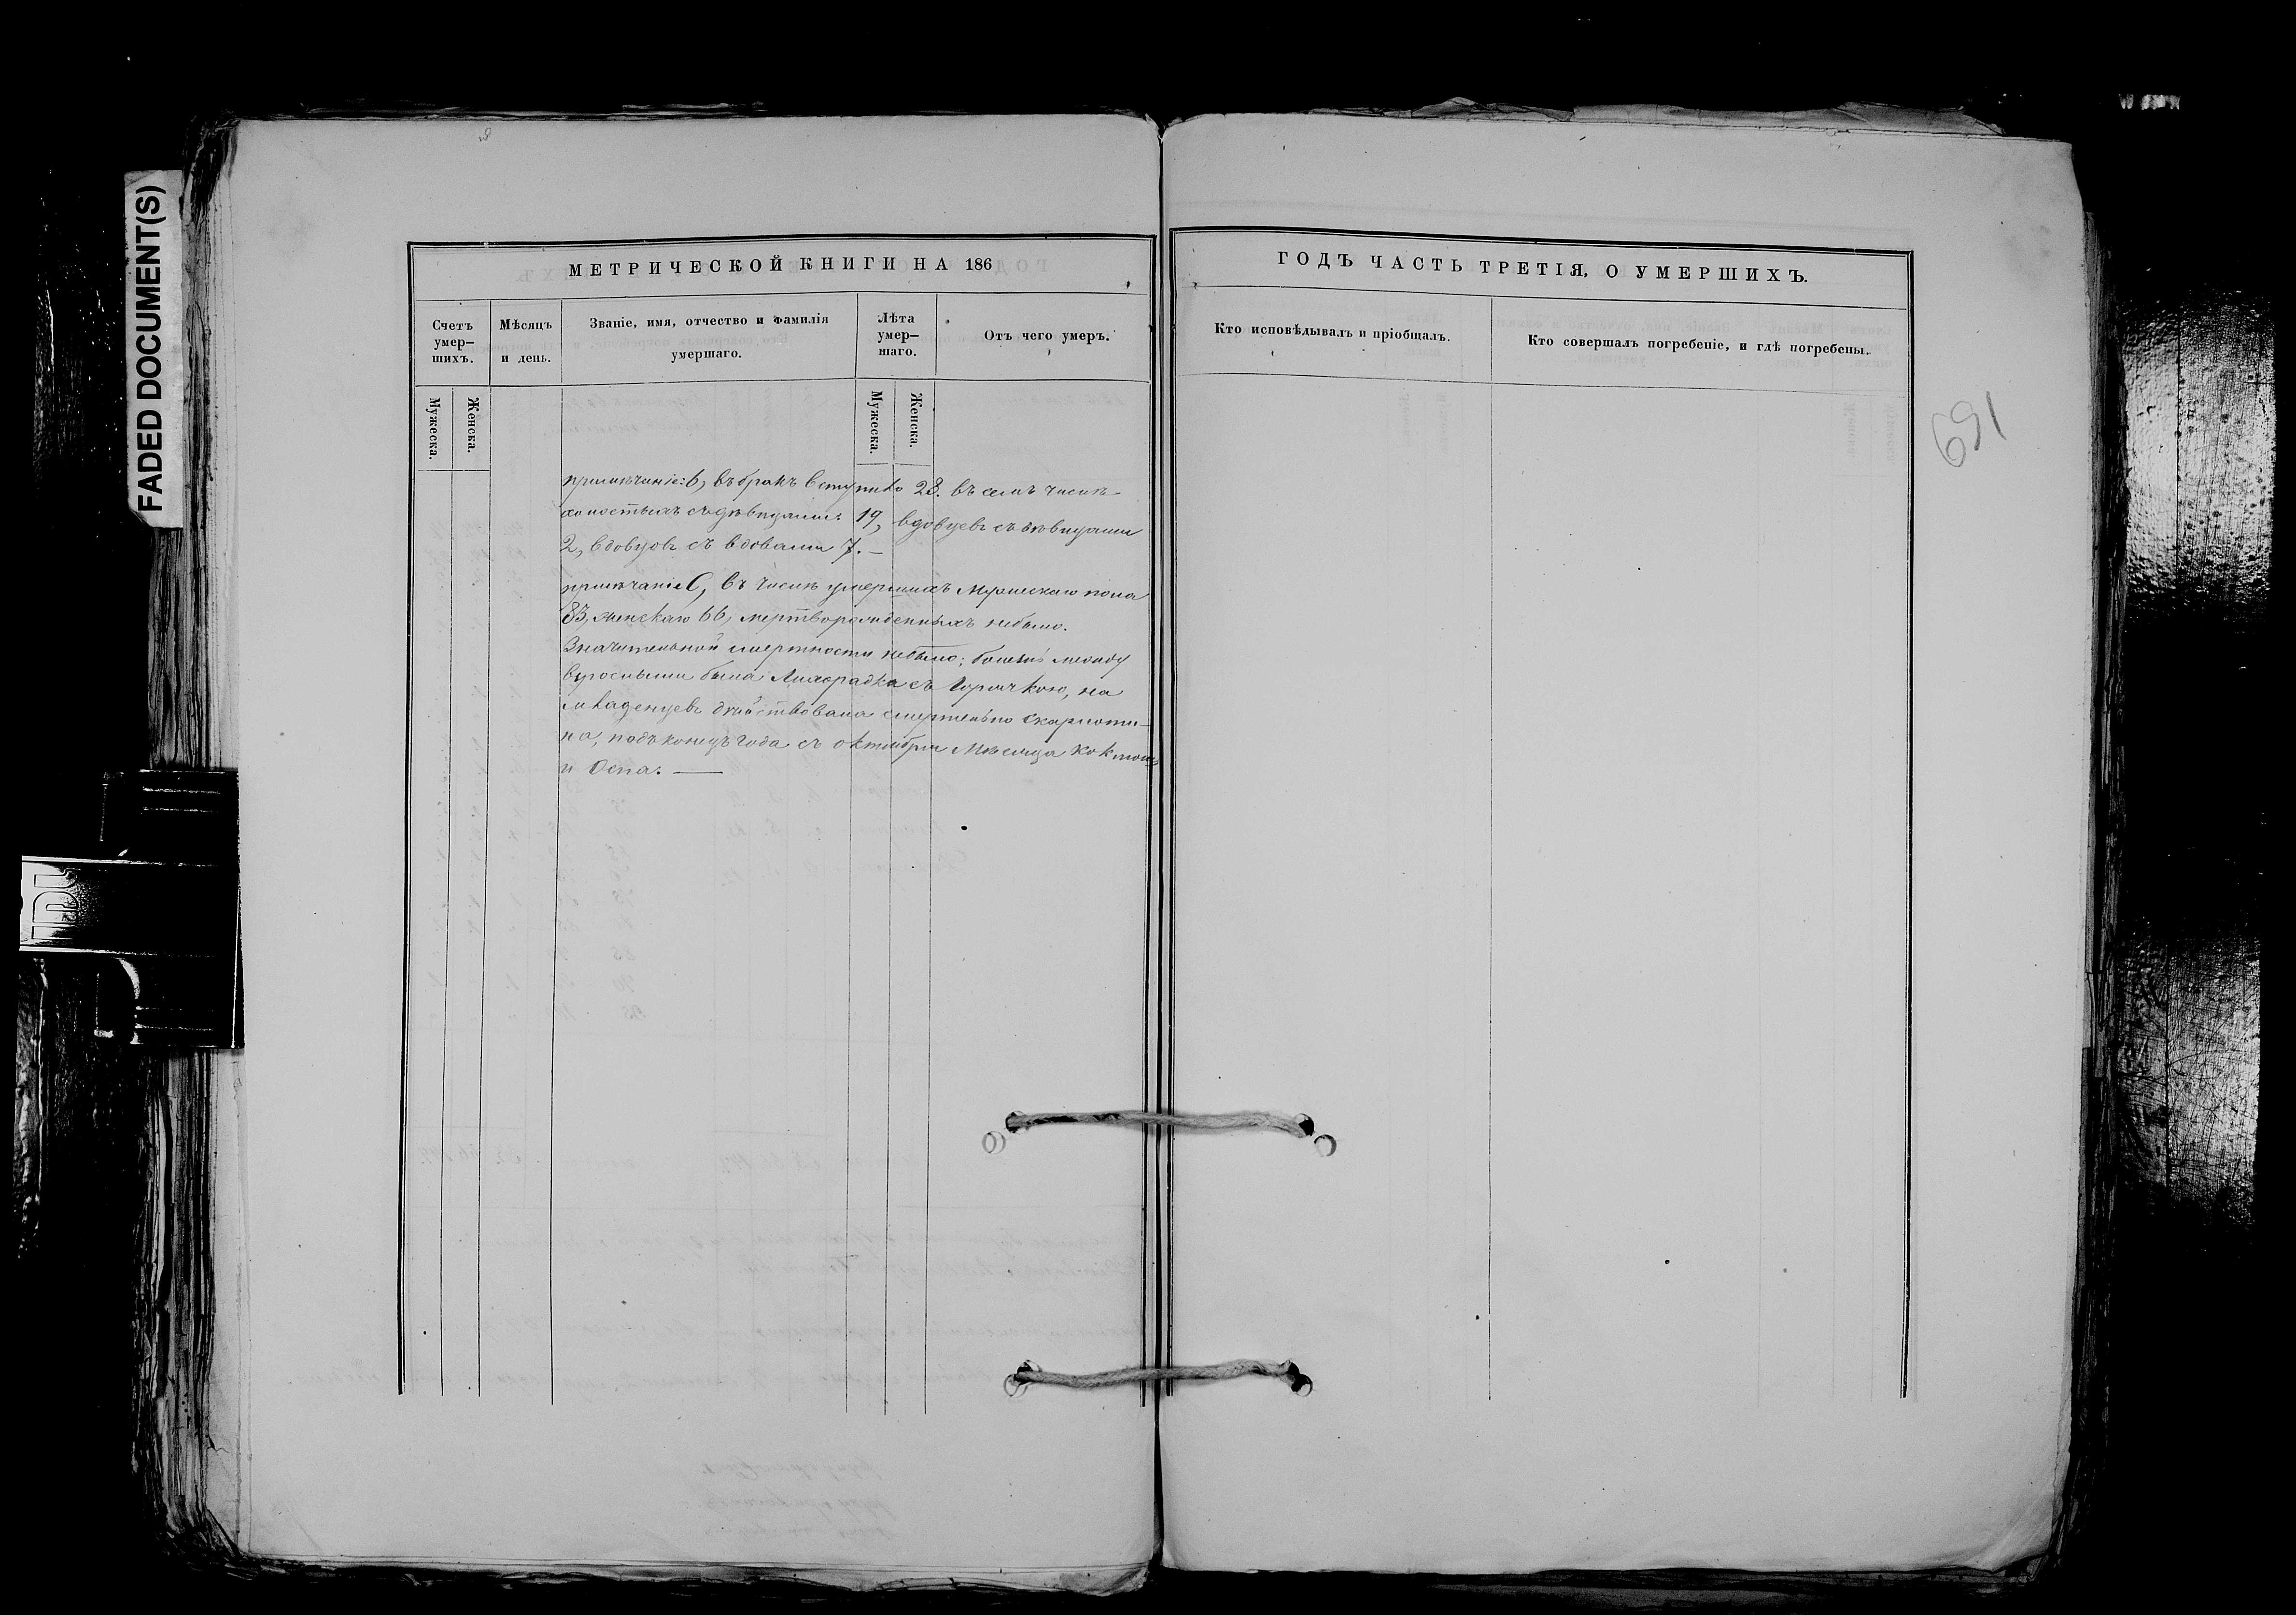 FADED DOCUMENT(S)
МЕТРИЧЕСКОЙ КНИГИ НА 186
Счетъ умер-шихъ.
Мѣсяцъ и день.
Званіе, имя, отчество и фамилія умершаго.
Лѣта умер-шаго.
Отъ чего умеръ.
Мужеска.
Женска.
Мужеска.
Женска.
примѣчаніе: б, въ бракъ вступило 28. въ семъ числѣ
холостыхъ съ дѣвицами 19, вдовцевъ съ дѣвицами
2, вдовцовъ съ вдовами 7. —
примѣчаніе С, въ числѣ умершихъ мужескаго пола
83, женскаго 66, мертворожденныхъ небыло.
Значительной смертности небыло; болезнь между
взрослыми была Лихорадка съ Горячкою, на
младенцевъ дѣйствовала смертельно скарлоти-
на, подъ конецъ года съ октября мѣсяца коклюшъ
и Оспа. —
ГОДЪ ЧАСТЬ ТРЕТІЯ, О УМЕРШИХЪ.
Кто исповѣдывалъ и пріобщалъ.
Кто совершалъ погребеніе, и гдѣ погребены.